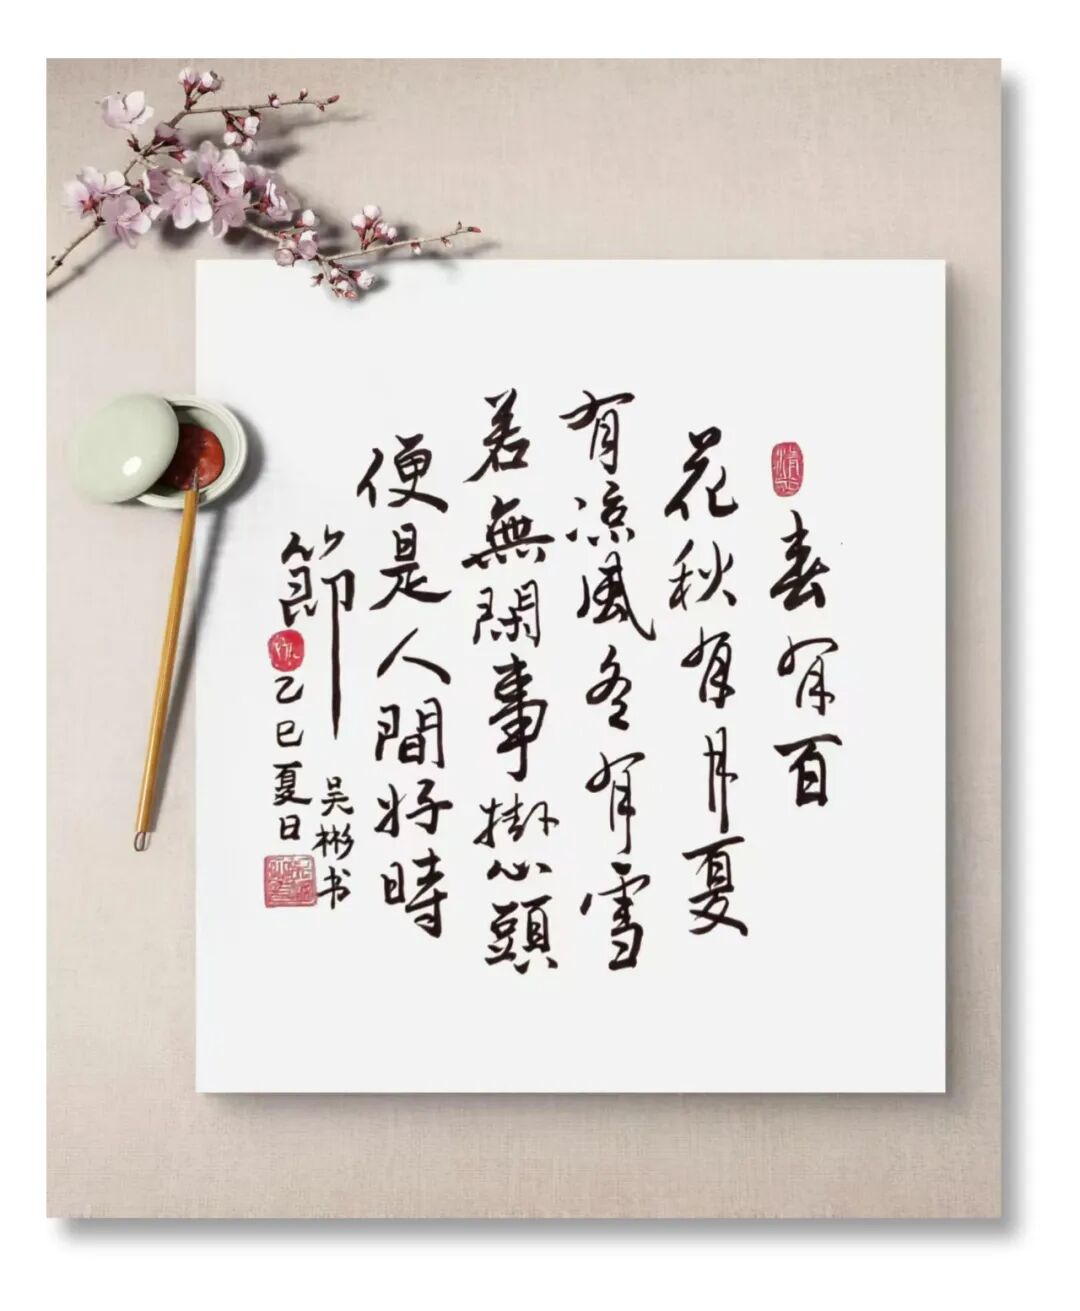 春有百
花秋有月夏
有凉風冬有雪
若無閑事掛心頭
便是人間好時
節
吴彬书
乙巳夏日